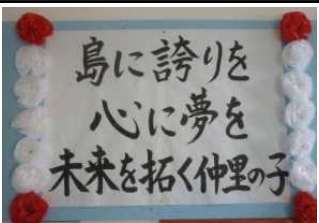 島に誇りを
心に夢を
未来を拓く仲里の子